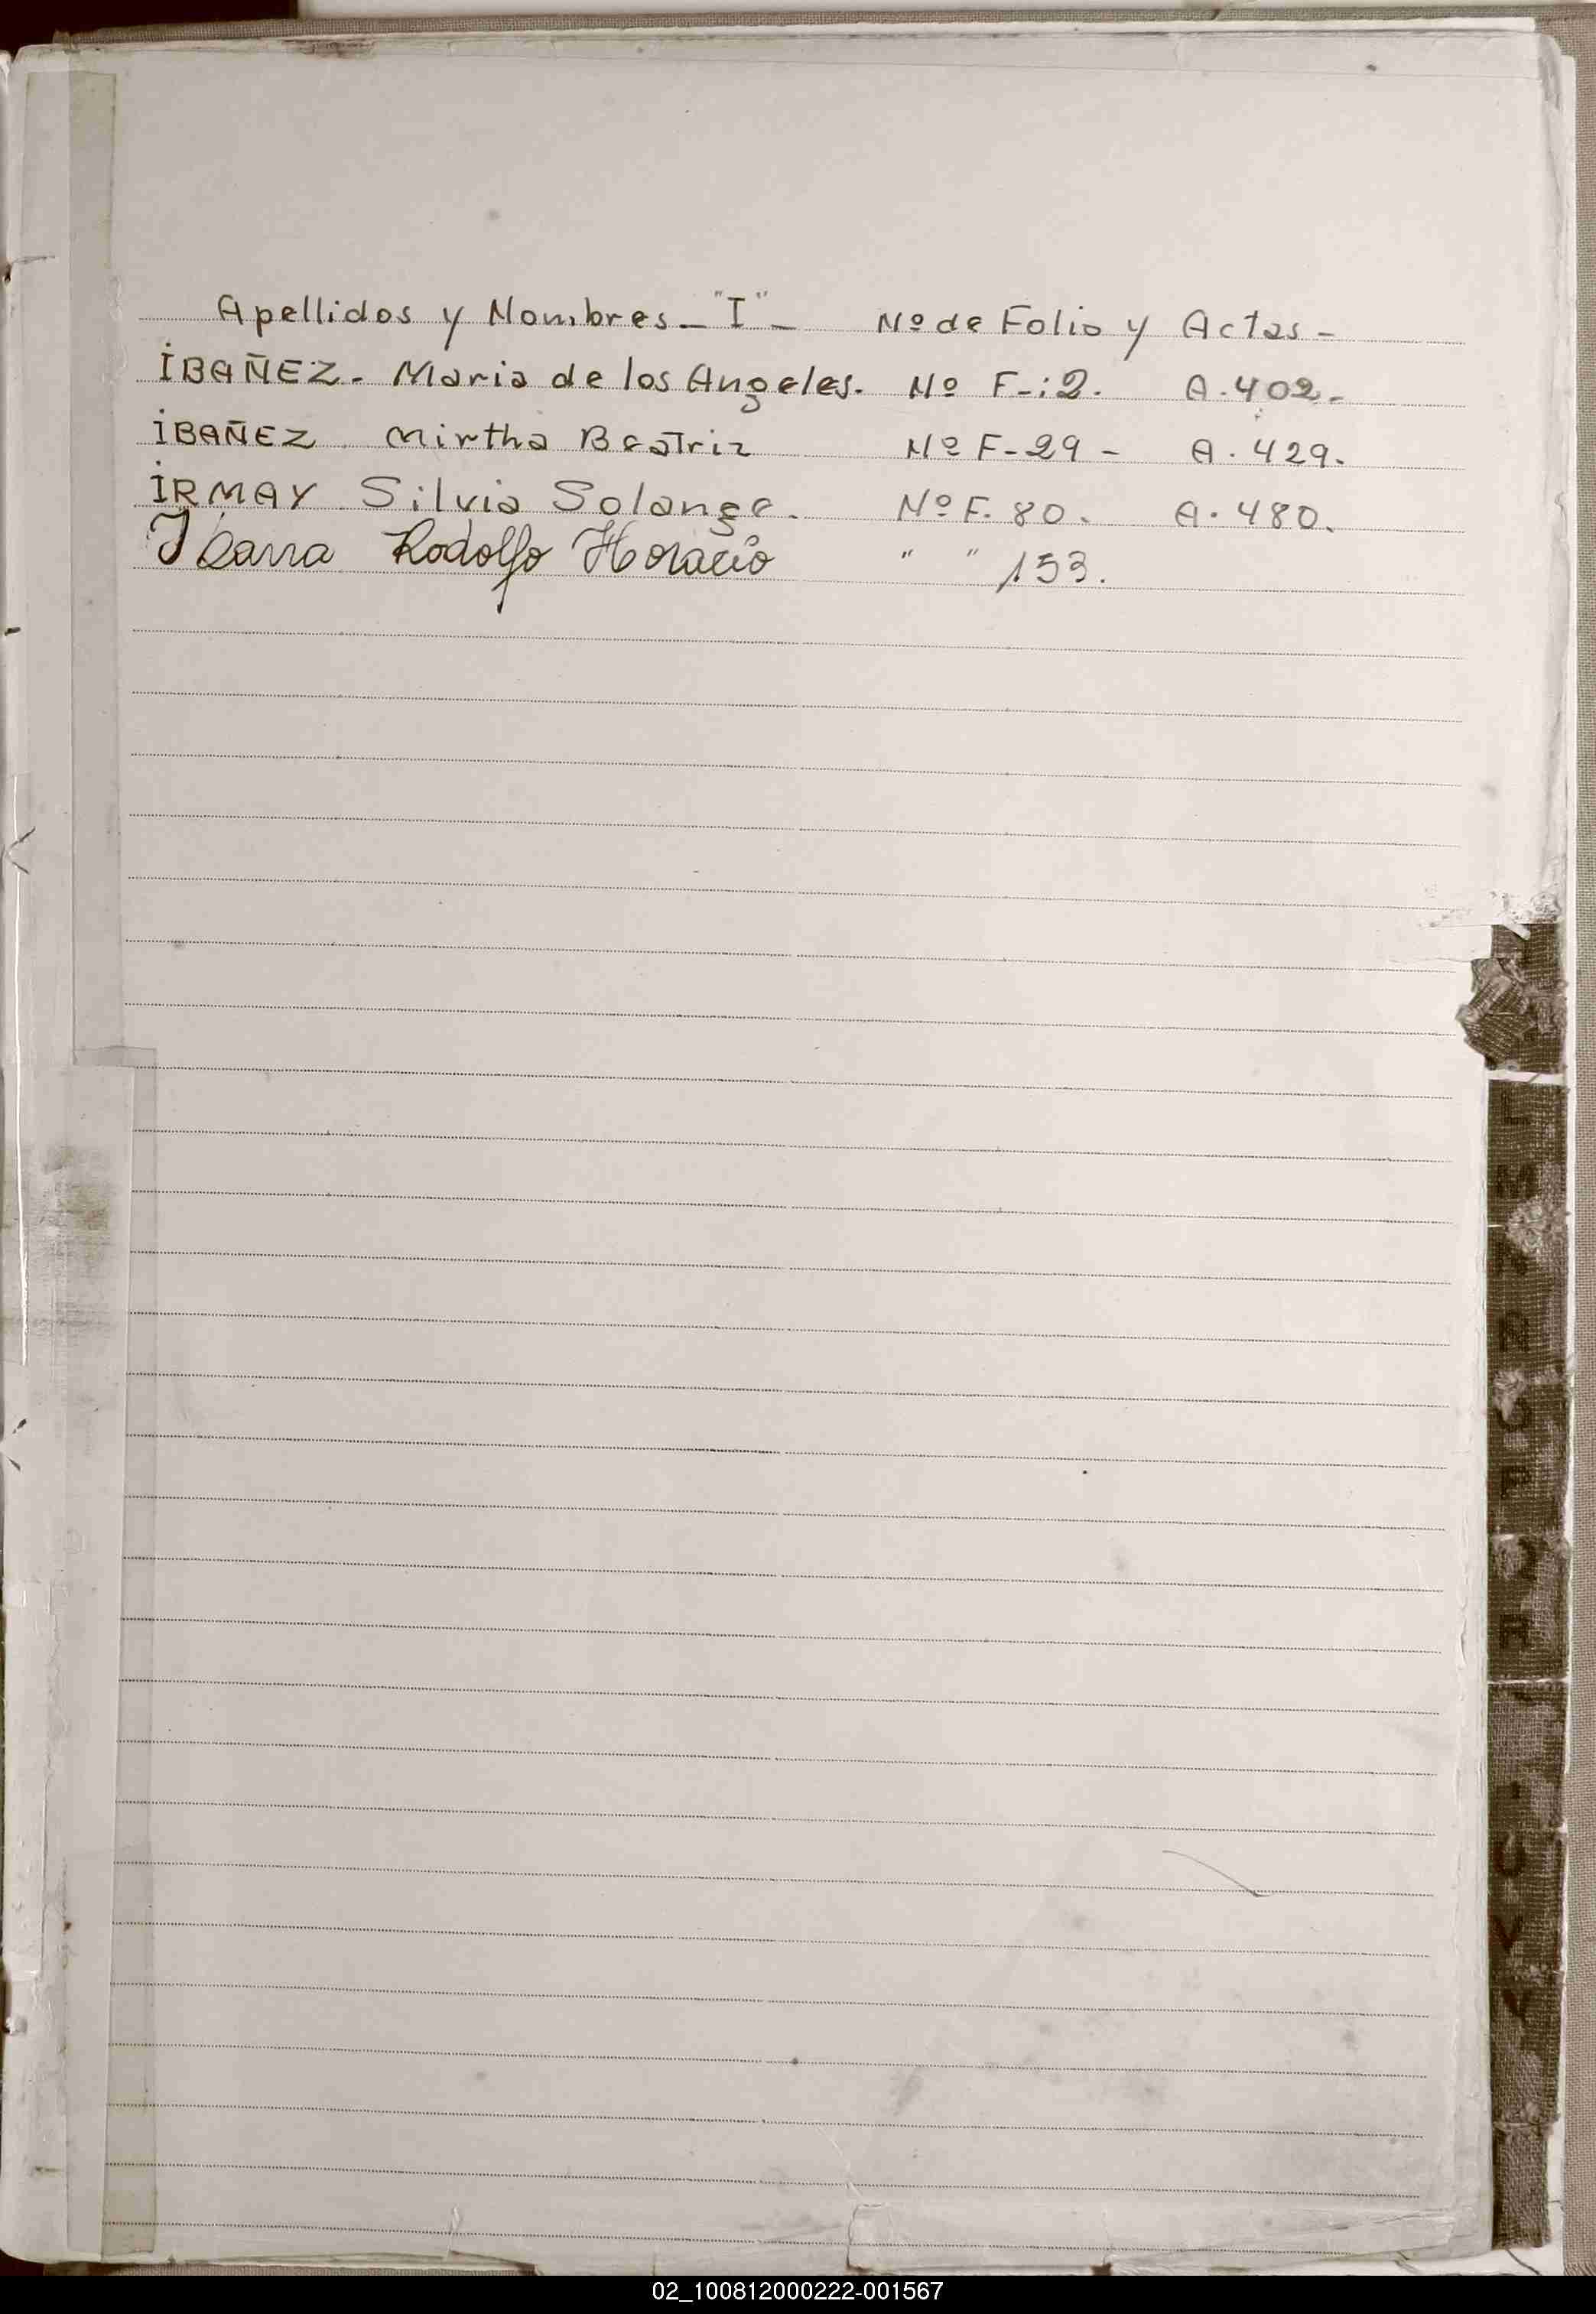 Apellidos y Nombres - "I" - Nº de Folio y Actas -
IBAÑEZ - Maria de los Angeles. Nº F-:2. A. 402 -
IBAÑEZ Mirtha Beatriz Nº F-29 - A. 429.
IRMAY Silvia Solange. Nº F. 80. A. 480.
Ibarra Rodolfo Horacio " " 153.
02_100812000222-001567